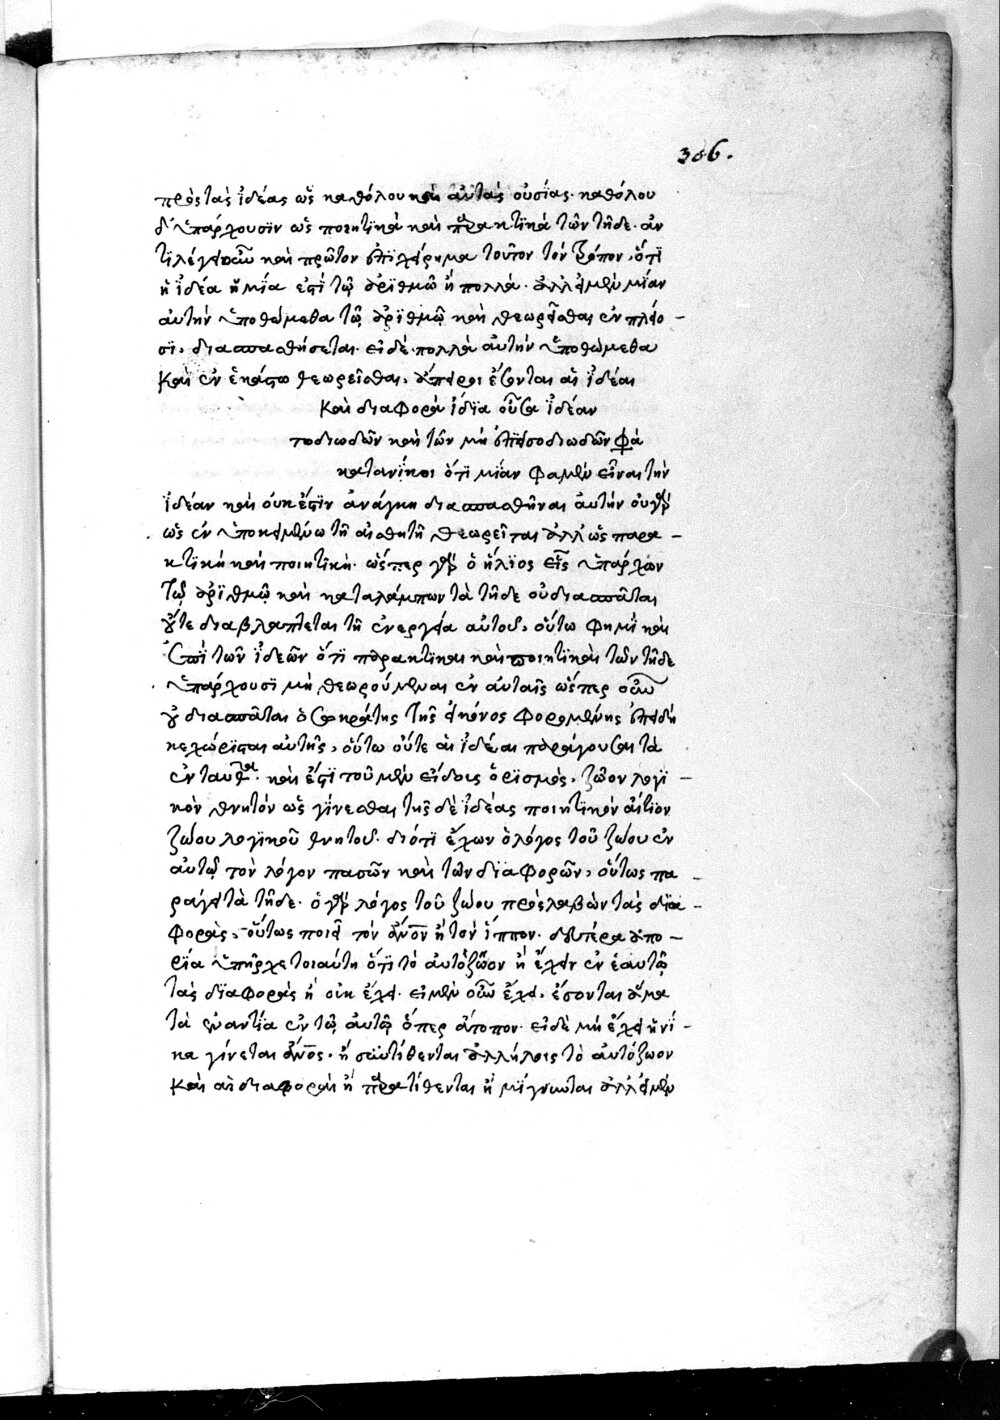 306.
πρὸς τὰς ἰδέας ὡς καθόλου καὶ αὐτὰς οὐσίας· καθόλου
δ' ὑπάρχουσιν ὡς ποιητικὰ καὶ πρακτικὰ τῶν τῆδε· ἀν
τιλέγει οὖν καὶ πρῶτον ἐπιχείρημα τοῦτον τὸν τρόπον, ὅτι
ἡ ἰδέα ἢ μία ἐστὶ τῷ ἀριθμῷ ἢ πολλά· ἀλλ' εἰ μὲν μίαν
αὐτὴν ὑποθώμεθα τῷ ἀριθμῷ καὶ θεωρεῖσθαι ἐν πλείο-
σι, διασπασθήσεται· εἰ δὲ πολλὰ αὐτὴν ὑποθώμεθα
καὶ ἐν ἑκάστῳ θεωρεῖσθαι, ἄπειροι ἔσονται αἱ ἰδέαι
καὶ διαφορὰ ἰδία οὖσα ἰδέαν
ποδιωδῶν καὶ τῶν μὴ
κατανίκοι ὅτι μίαν φαμὲν εἶναι τὴν
ἰδέαν καὶ οὐκ ἔστιν ἀνάγκη διασπασθῆναι αὐτήν οὐ γὰρ
ὡς ἐν ὑποκειμένῳ τῇ αἰσθητῇ θεωρεῖται ἀλλ' ὡς παρα-
κτικὴ καὶ ποιητική· ὥσπερ γὰρ ὁ ἥλιος εἷς ὑπάρχων
τῷ ἀριθμῷ καὶ καταλάμπων τὰ τῆδε οὐ διασπᾶται
οὔτε διαβλάπτεται τῇ ἐνεργείᾳ αὐτοῦ, οὕτω φημὶ καὶ
ἐπὶ τῶν ἰδεῶν ὅτι πρακτικαὶ καὶ ποιητικαὶ τῶν τῆδε
ὑπάρχουσι μὴ θεωρούμεναι ἐν αὐταῖς ὥσπερ οὖν
οὐ διασπᾶται ὁ Σωκράτης τῆς εἰκόνος φερομένης ἐπειδὴ
κεχώρισται αὐτῆς, οὕτω οὔτε αἱ ἰδέαι παράγουσαι τὰ
ἐνταῦθα· καὶ ἔστι τοῦ μὲν εἴδους ὁρισμός, ζῶον λογι-
κὸν θνητόν ὡς γίνεσθαι τῆς δὲ ἰδέας ποιητικὸν αἴτιον
ζώου λογικοῦ θνητοῦ· διότι ἔχων ὁ λόγος τοῦ ζώου ἐν
αὐτῷ τὸν λόγον πασῶν καὶ τῶν διαφορῶν, οὕτως πα-
ράγει τὰ τῆδε· ὁ γὰρ λόγος τοῦ ζώου προσλαβὼν τὰς δια-
φοράς, οὕτως ποιεῖ τὸν ἄνον ἢ τὸν ἵππον· δευτέρα ἀπο-
ρία ὑπῆρχε τοιαύτη ὅτι τὸ αὐτόζῶον ἢ ἔχει ἐν ἑαυτῷ
τὰς διαφορὰς ἢ οὐκ ἔχει· εἰ μὲν οὖν ἔχει, ἔσονται ἅμα
τὰ ἐναντία ἐν τῷ αὐτῷ ὅπερ ἄτοπον· εἰ δὲ μὴ ἔχει ἡνί-
κα γίνεται ἄνος· ἢ συντίθενται ἀλλήλοις τὸ αὐτόζωον
καὶ αἱ διαφοραὶ ἢ παρατίθενται ἢ μίγνυνται ἀλλ' εἰ μὲν